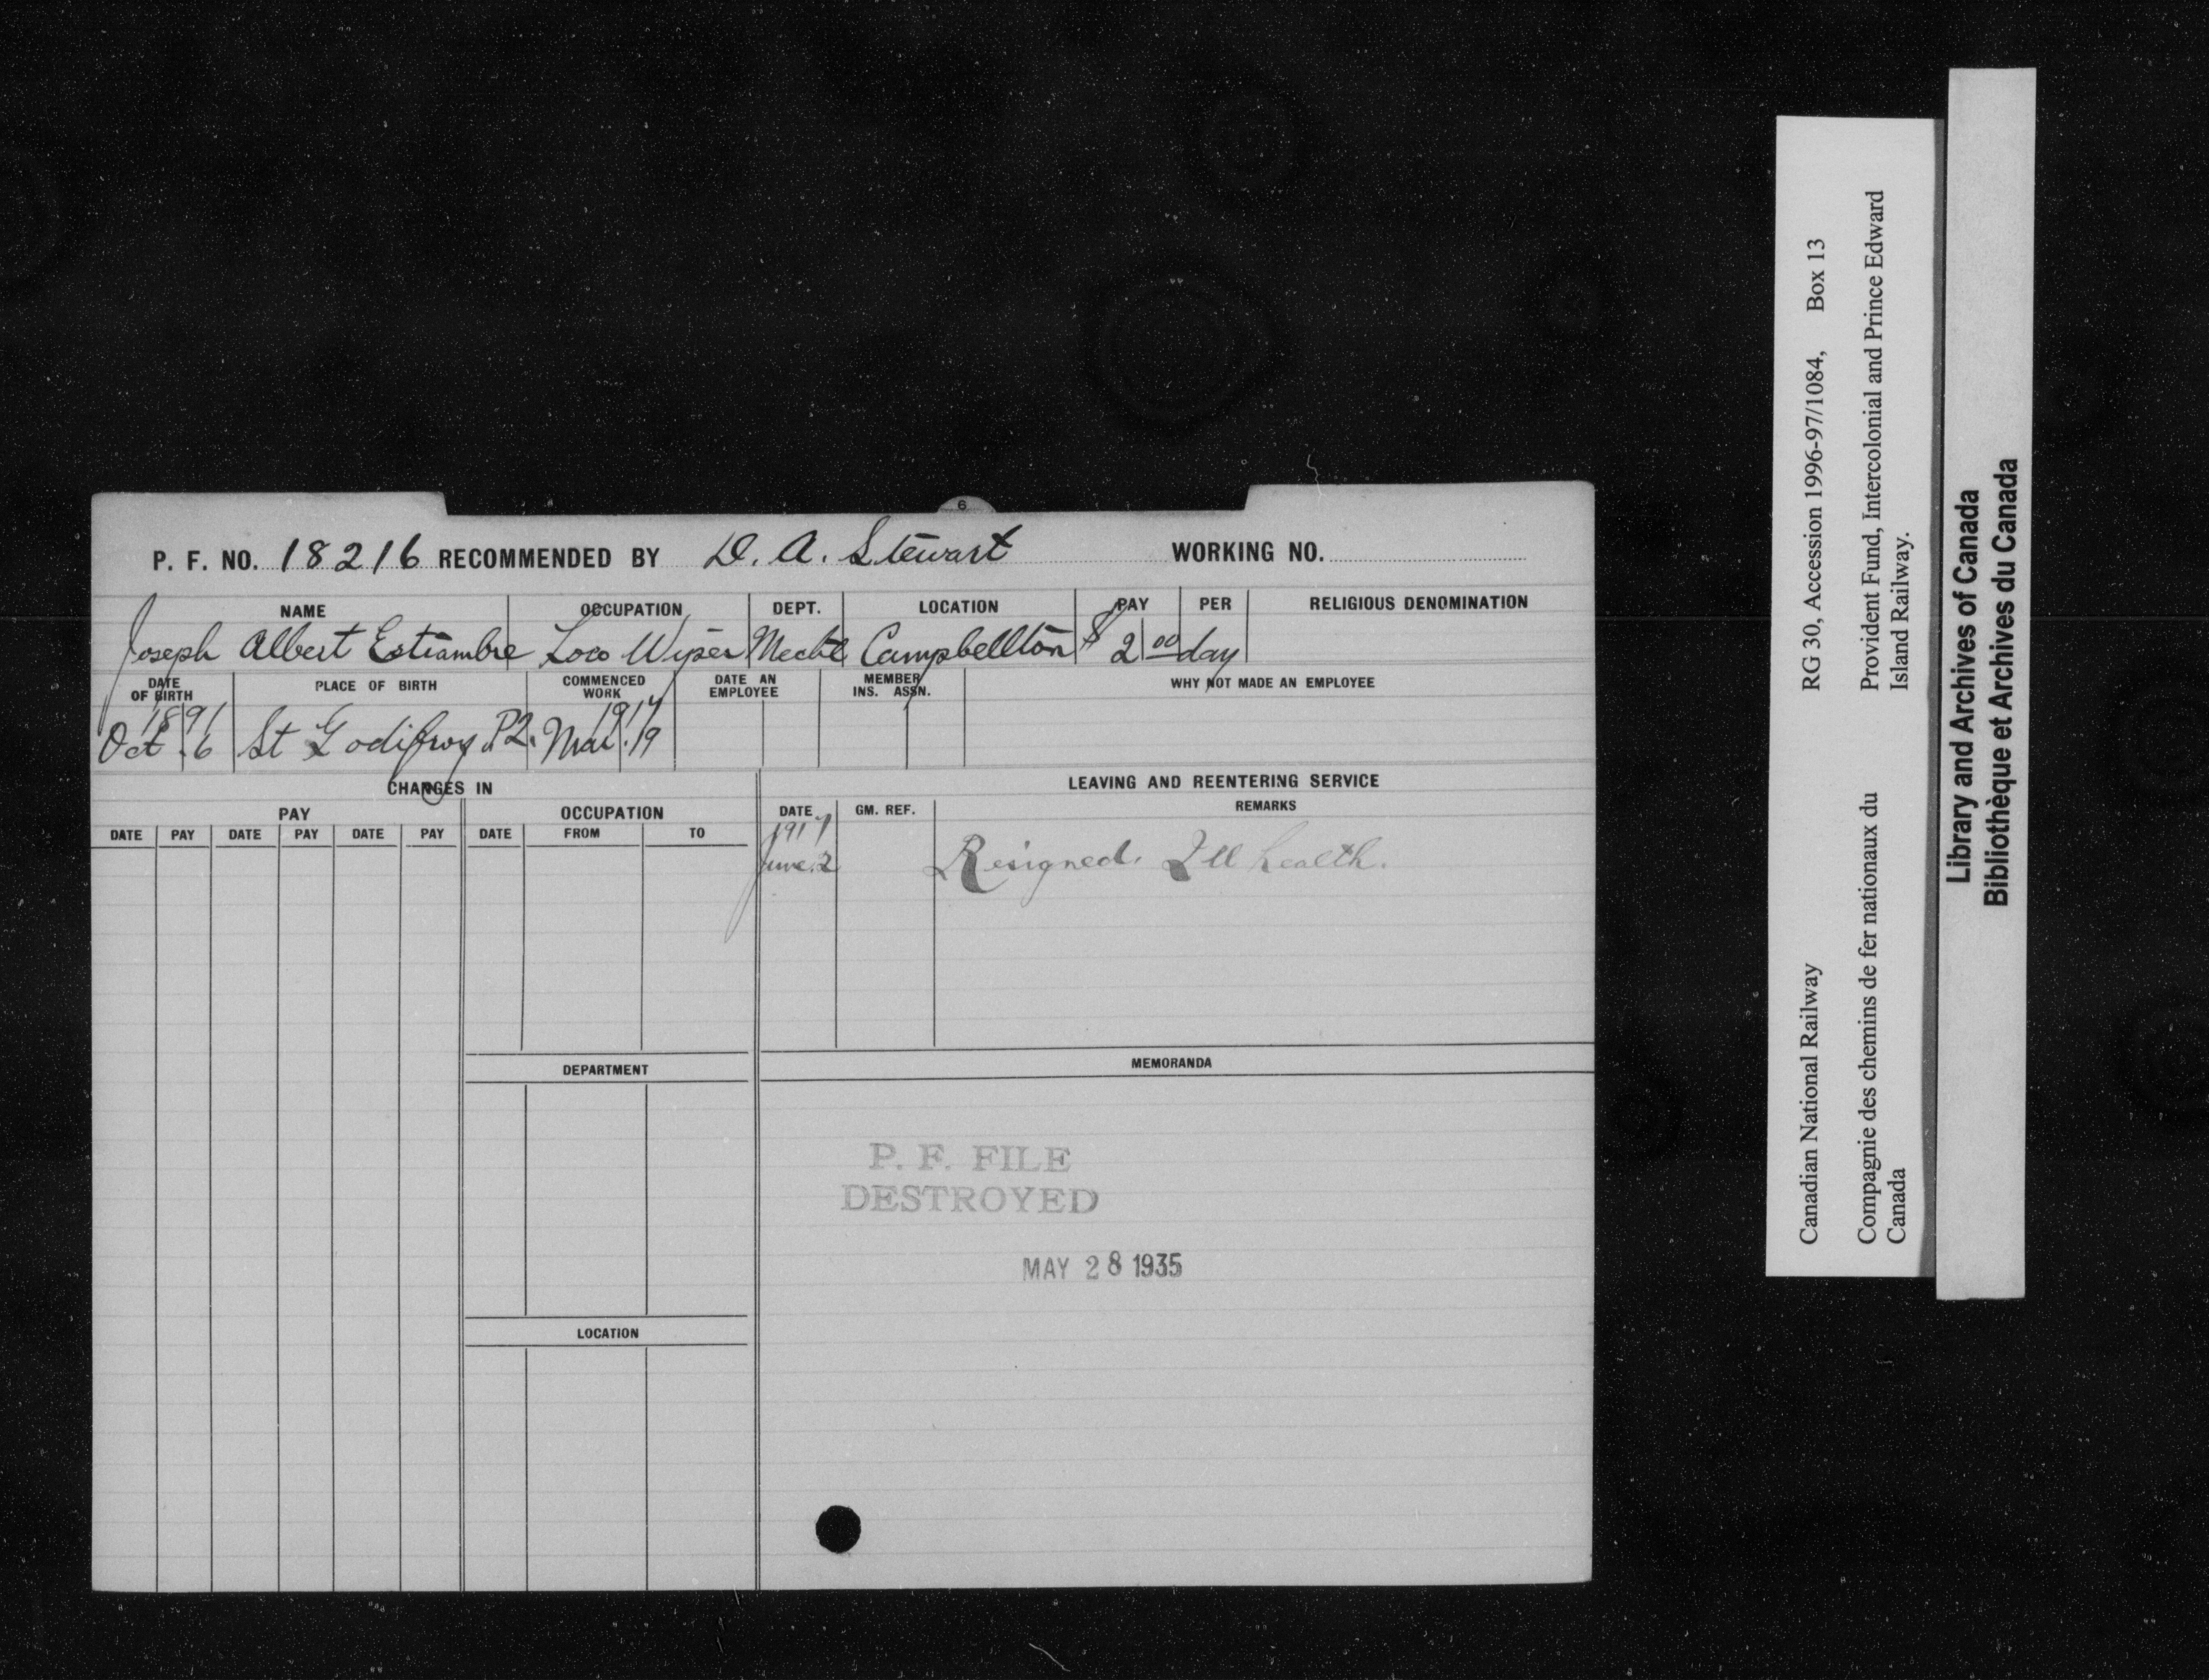 6
P. F. NO. 18216 RECOMMENDED BY D. A. Stewart WORKING NO.
NAME OCCUPATION DEPT. LOCATION PAY PER RELIGIOUS DENOMINATION
Joseph Albert Estiambre Loco Wiper Mechl Campbellton $ 2 00 day
DATE OF BIRTH PLACE OF BIRTH COMMENCED WORK DATE AN EMPLOYEE MEMBER INS. ASSN. WHY NOT MADE AN EMPLOYEE
1891 1917
Oct. 6 St Godifroy P2. Mar. 19
CHANGES IN LEAVING AND REENTERING SERVICE
PAY OCCUPATION DATE GM. REF. REMARKS
DATE PAY DATE PAY DATE PAY DATE FROM TO
1917
June. 2 Resigned. Ill health.
DEPARTMENT MEMORANDA
P. F. FILE
DESTROYED
MAY 28 1935
LOCATION
Canadian National Railway RG 30, Accession 1996-97/1084, Box 13
Compagnie des chemins de fer nationaux du
Canada
Provident Fund, Intercolonial and Prince Edward
Island Railway.
Library and Archives of Canada
Bibliothèque et Archives du Canada